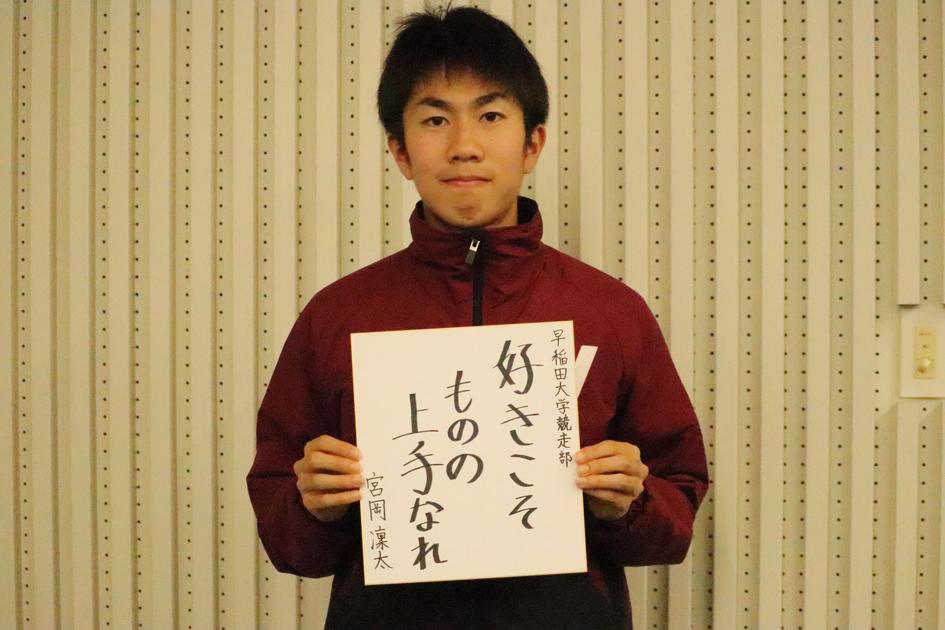 早稲田大学競走部
好きこそ
ものの
上手なれ
宮岡凜太